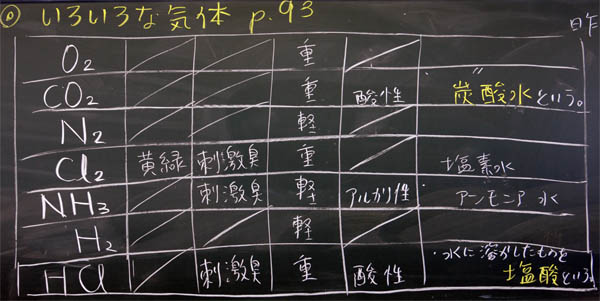 ◎ いろいろな気体 p.93
昨
O2 重
CO2 重 酸性 炭酸水という。
N2 軽
Cl2 黄緑 刺激臭 重 塩素水
NH3 刺激臭 軽 アルカリ性 アンモニア水
H2 軽
HCl 刺激臭 重 酸性 ・水に溶かしたものを
塩酸という。